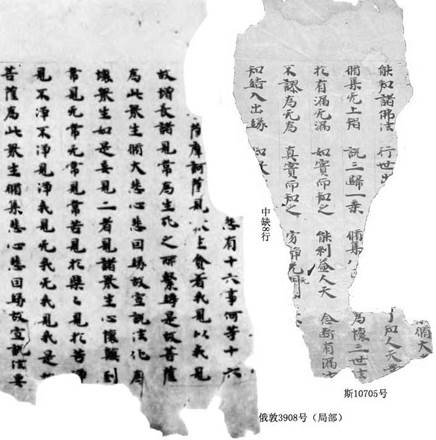 備大
能知諸佛法 行世出 了知人天
備集无上 說三歸一乘 備集 為懷三世法
於有漏无漏 如實而知之 能利益人天 念斷有漏
不 為无為 真實而知之
知諸入出緣
中缺8行
悲有十六事何等十六
薩摩訶薩見 上貪着我見以我見
故增長諸見常為生死之所繫縛是故菩薩
為此眾生備大悲心悲回緣故宣說法化為
壞眾生如是妄見二者見諸眾生心懷顛倒
常見无常无常見常苦見於樂樂見於苦淨
見不淨不淨見淨我見无我无我見我是
菩薩為此眾生備集悲心悲回緣故宣說法要
斯10705号
俄敦3908号（局部）